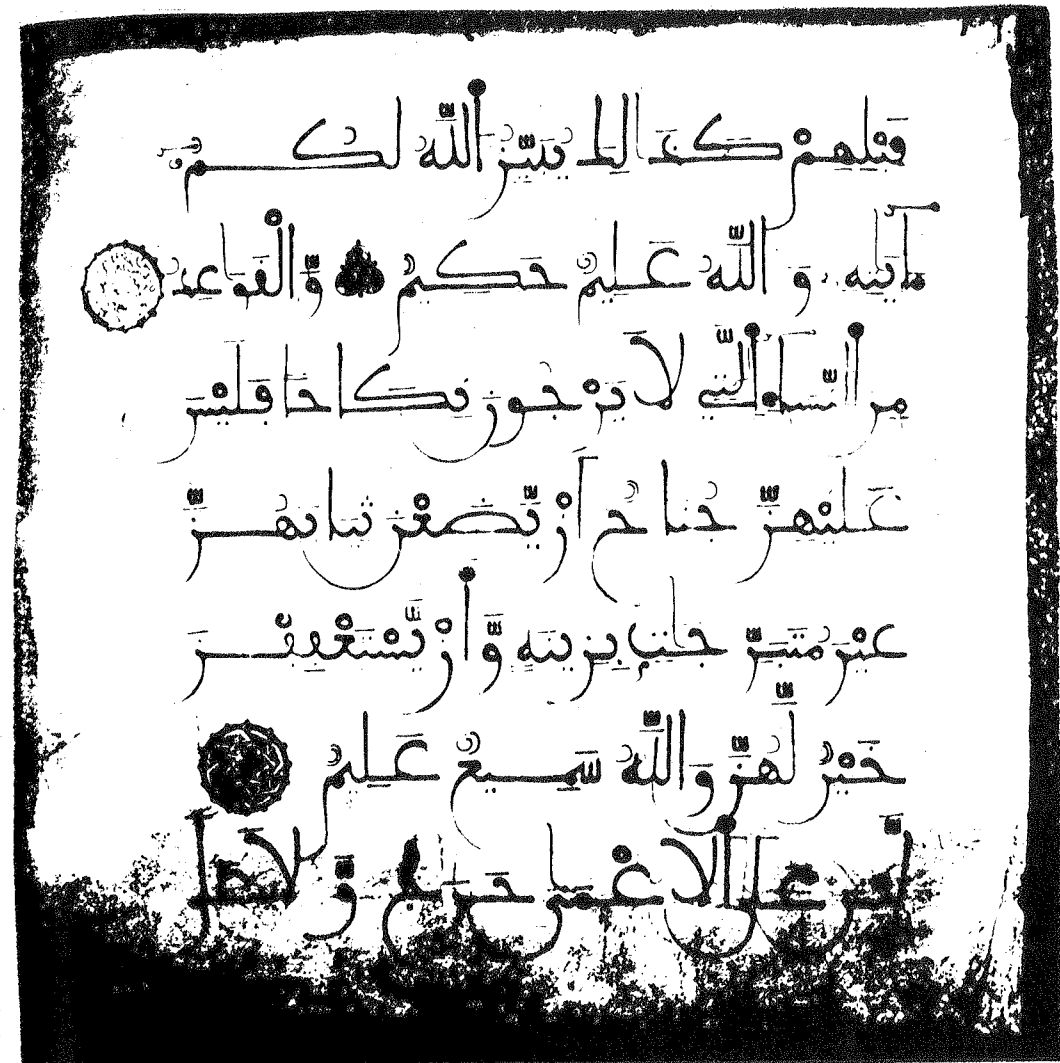 قَبْلِهِمْ كَذَٰلِكَ يُبَيِّنُ اُ۬للَّهُ لَكُمُ
ءَايَٰتِهِۦ وَاللَّهُ عَلِيمٌ حَكِيمٌ وَّالْقَوَٰعِدُ
مِنَ اَ۬لنِّسَآءِ اِ۬لَّٰتِي لَا يَرْجُونَ نِكَاحًا فَلَيْسَ
عَلَيْهِنَّ جُنَاحٌ أَنْ يَّضَعْنَ ثِيَابَهُنَّ
غَيْرَ مُتَبَرِّجَٰتٍ بِزِينَةٍ وَّأَنْ يَّسْتَعْفِفْنَ
خَيْرٌ لَّهُنَّ وَاللَّهُ سَمِيعٌ عَلِيمٌ
لَّيْسَ عَلَى اَ۬لْأَعْمَىٰ حَرَجٌ وَّلَا عَلَى